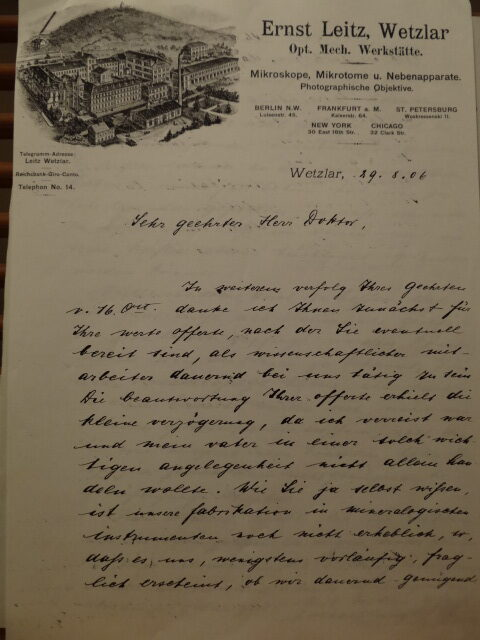 Ernst Leitz, Wetzlar
Opt. Mech. Werkstätte.
Mikroskope, Mikrotome u. Nebenapparate.
Photographische Objektive.
BERLIN N.W. FRANKFURT a. M. ST. PETERSBURG
Luisenstr. 45. Kaiserstr. 64. Woskressenski 11.
NEW YORK CHICAGO
30 East 18th Str. 32 Clark Str.
Telegramm-Adresse:
Leitz Wetzlar.
Reichsbank-Giro-Conto.
Telephon No. 14.
Wetzlar, 29.8.06
Sehr geehrter Herr Doktor,
In weiterem verfolg Ihres Geehrten
v. 16. danke ich Ihnen zunächst für
Ihre werte offerte, nach der Sie eventuell
bereit sind, als wissenschaftlicher mit-
arbeiter dauernd bei uns tätig zu sein
Die beantwortung Ihrer offerte erhielt die
kleine verzögerung, da ich verreist war
und mein vater in einer solch wich
tigen angelegenheit nicht allein han
deln wollte. Wie Sie ja selbst wissen,
ist unsere fabrikation in mineralogischen
instrumenten noch nicht erheblich, so,
dass es uns, wenigstens vorläufig, frag-
lich erscheint, ob wir dauernd genügend